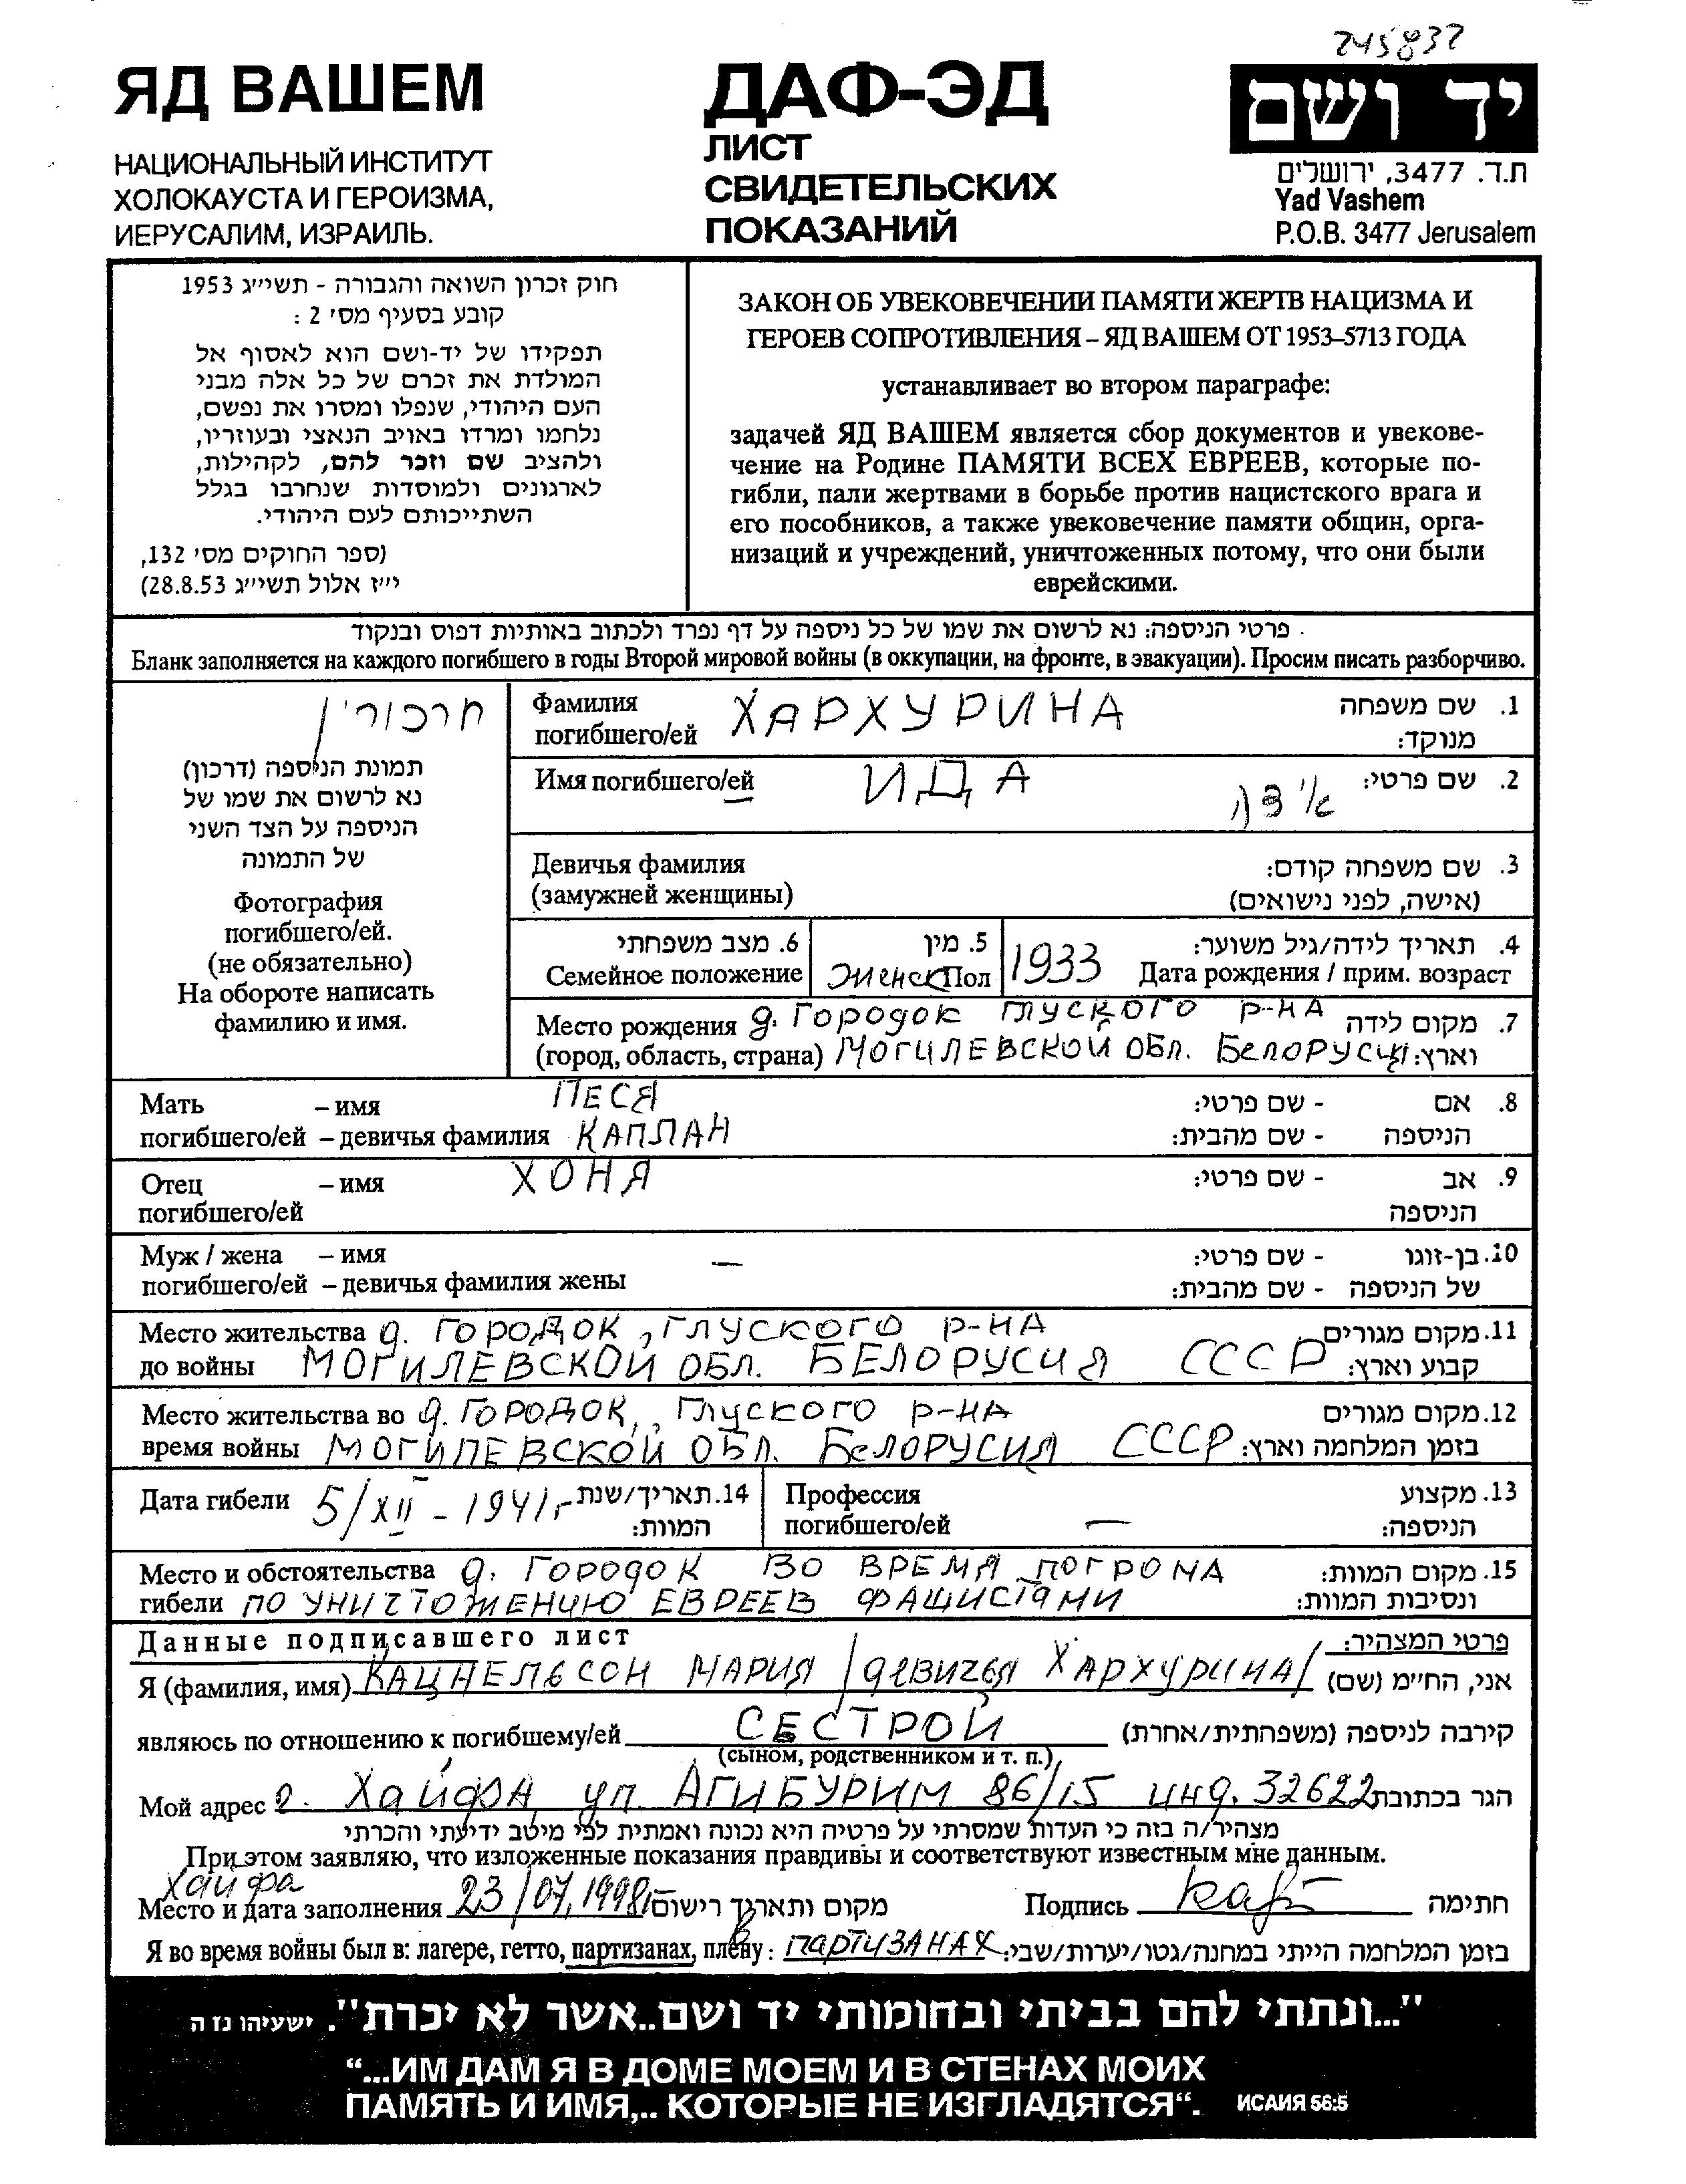 245832
ЯД ВАШЕМ
НАЦИОНАЛЬНЫЙ ИНСТИТУТ
ХОЛОКАУСТА И ГЕРОИЗМА,
ИЕРУСАЛИМ, ИЗРАИЛЬ.
ДАФ-ЭД
ЛИСТ
СВИДЕТЕЛЬСКИХ
ПОКАЗАНИЙ
יד ושם
ת.ד. 3477, ירושלים
Yad Vashem
P.O.B. 3477 Jerusalem
חוק זכרון השואה והגבורה - תשי״ג 1953
קובע בסעיף מס׳ 2 :
תפקידו של יד-ושם הוא לאסוף אל
המולדת את זכרם של כל אלה מבני
העם היהודי, שנפלו ומסרו את נפשם,
נלחמו ומרדו באויב הנאצי ובעוזריו,
ולהציב שם וזכר להם, לקהילות,
לארגונים ולמוסדות שנחרבו בגלל
השתייכותם לעם היהודי.
(ספר החוקים מס׳ 132,
י״ז אלול תשי״ג 28.8.53)
ЗАКОН ОБ УВЕКОВЕЧЕНИИ ПАМЯТИ ЖЕРТВ НАЦИЗМА И
ГЕРОЕВ СОПРОТИВЛЕНИЯ – ЯД ВАШЕМ ОТ 1953–5713 ГОДА
устанавливает во втором параграфе:
задачей ЯД ВАШЕМ является сбор документов и увекове-
чение на Родине ПАМЯТИ ВСЕХ ЕВРЕЕВ, которые по-
гибли, пали жертвами в борьбе против нацистского врага и
его пособников, а также увековечение памяти общин, орга-
низаций и учреждений, уничтоженных потому, что они были
еврейскими.
פרטי הניספה: נא לרשום את שמו של כל ניספה על דף נפרד ולכתוב באותיות דפוס ובנקוד
Бланк заполняется на каждого погибшего в годы Второй мировой войны (в оккупации, на фронте, в эвакуации). Просим писать разборчиво.
חרכורין
תמונת הניספה (דרכון)
נא לרשום את שמו של
הניספה על הצד השני
של התמונה
Фотография
погибшего/ей.
(не обязательно)
На обороте написать
фамилию и имя.
Фамилия ХАРХУРИНА 1. שם משפחה
погибшего/ей מנוקד:
Имя погибшего/ей ИДА אידה 2. שם פרטי:
Девичья фамилия 3. שם משפחה קודם:
(замужней женщины) (אישה, לפני נישואים)
6. מצב משפחתי 5. מין 4. תאריך לידה/גיל משוער:
Семейное положение женск Пол 1933 Дата рождения / прим. возраст
Место рождения д. Городок Глуского р-на 7. מקום לידה
(город, область, страна) МОГИЛЕВСКОЙ ОБЛ. БЕЛОРУСИЯ וארץ:
Мать – имя ПЕСЯ 8. אם - שם פרטי:
погибшего/ей – девичья фамилия КАПЛАН הניספה - שם מהבית:
Отец – имя ХОНЯ 9. אב - שם פרטי:
погибшего/ей הניספה
Муж / жена – имя — 10. בן-זוגו - שם פרטי:
погибшего/ей – девичья фамилия жены של הניספה - שם מהבית:
Место жительства д. ГОРОДОК, ГЛУСКОГО р-НА 11. מקום מגורים
до войны МОГИЛЕВСКОЙ ОБЛ. БЕЛОРУСИЯ СССР קבוע וארץ:
Место жительства во д. ГОРОДОК, Глуского р-НА 12. מקום מגורים
время войны МОГИЛЕВСКОЙ ОБЛ. БЕЛОРУСИЯ СССР בזמן המלחמה וארץ:
Дата гибели 5/XII - 1941г. 14. תאריך/שנת המוות: Профессия — 13. מקצוע
погибшего/ей הניספה:
Место и обстоятельства д. Городок ВО ВРЕМЯ ПОГРОМА 15. מקום המוות:
гибели ПО УНИЧТОЖЕНИЮ ЕВРЕЕВ ФАШИСТАМИ ונסיבות המוות:
Данные подписавшего лист פרטי המצהיר:
Я (фамилия, имя) КАЦНЕЛЬСОН МАРИЯ /девичья ХАРХУРИНА/ אני, החי״מ (שם)
являюсь по отношению к погибшему/ей СЕСТРОЙ קירבה לניספה (משפחתית/אחרת)
(сыном, родственником и т. п.)
Мой адрес г. Хайфа ул. АГИБУРИМ 86/15 инд. 32622 הגר בכתובת
מצהיר/ה בזה כי העדות שמסרתי על פרטיה היא נכונה ואמתית לפי מיטב ידיעתי והכרתי
При этом заявляю, что изложенные показания правдивы и соответствуют известным мне данным.
Хайфа
Место и дата заполнения 23/07,1998 מקום ותאריך רישום Подпись חתימה
Я во время войны был в: лагере, гетто, партизанах, плену: в ПАРТИЗАНАХ בזמן המלחמה הייתי במחנה/גטו/יערות/שבי:
"...ונתתי להם בביתי ובחומותי יד ושם..אשר לא יכרת". ישעיהו נז ה
“...ИМ ДАМ Я В ДОМЕ МОЕМ И В СТЕНАХ МОИХ
ПАМЯТЬ И ИМЯ,.. КОТОРЫЕ НЕ ИЗГЛАДЯТСЯ“. ИСАИЯ 56:5